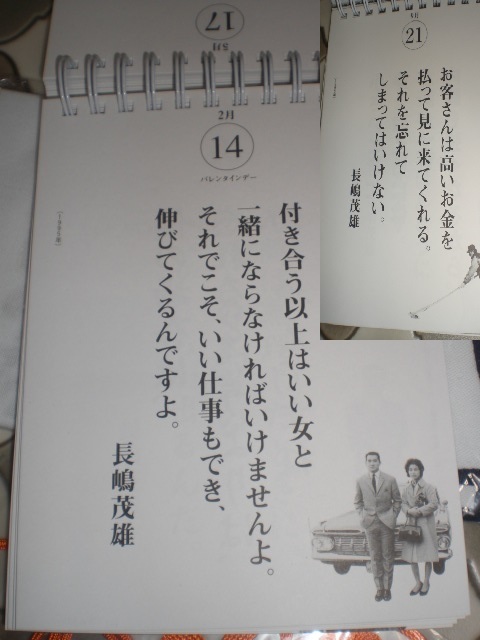 17
2月
14
バレンタインデー
付き合う以上はいい女と
一緒にならなければいけませんよ。
それでこそ、いい仕事もでき、
伸びてくるんですよ。
長嶋茂雄
21
お客さんは高いお金を
払って見に来てくれる。
それを忘れて
しまってはいけない。
長嶋茂雄